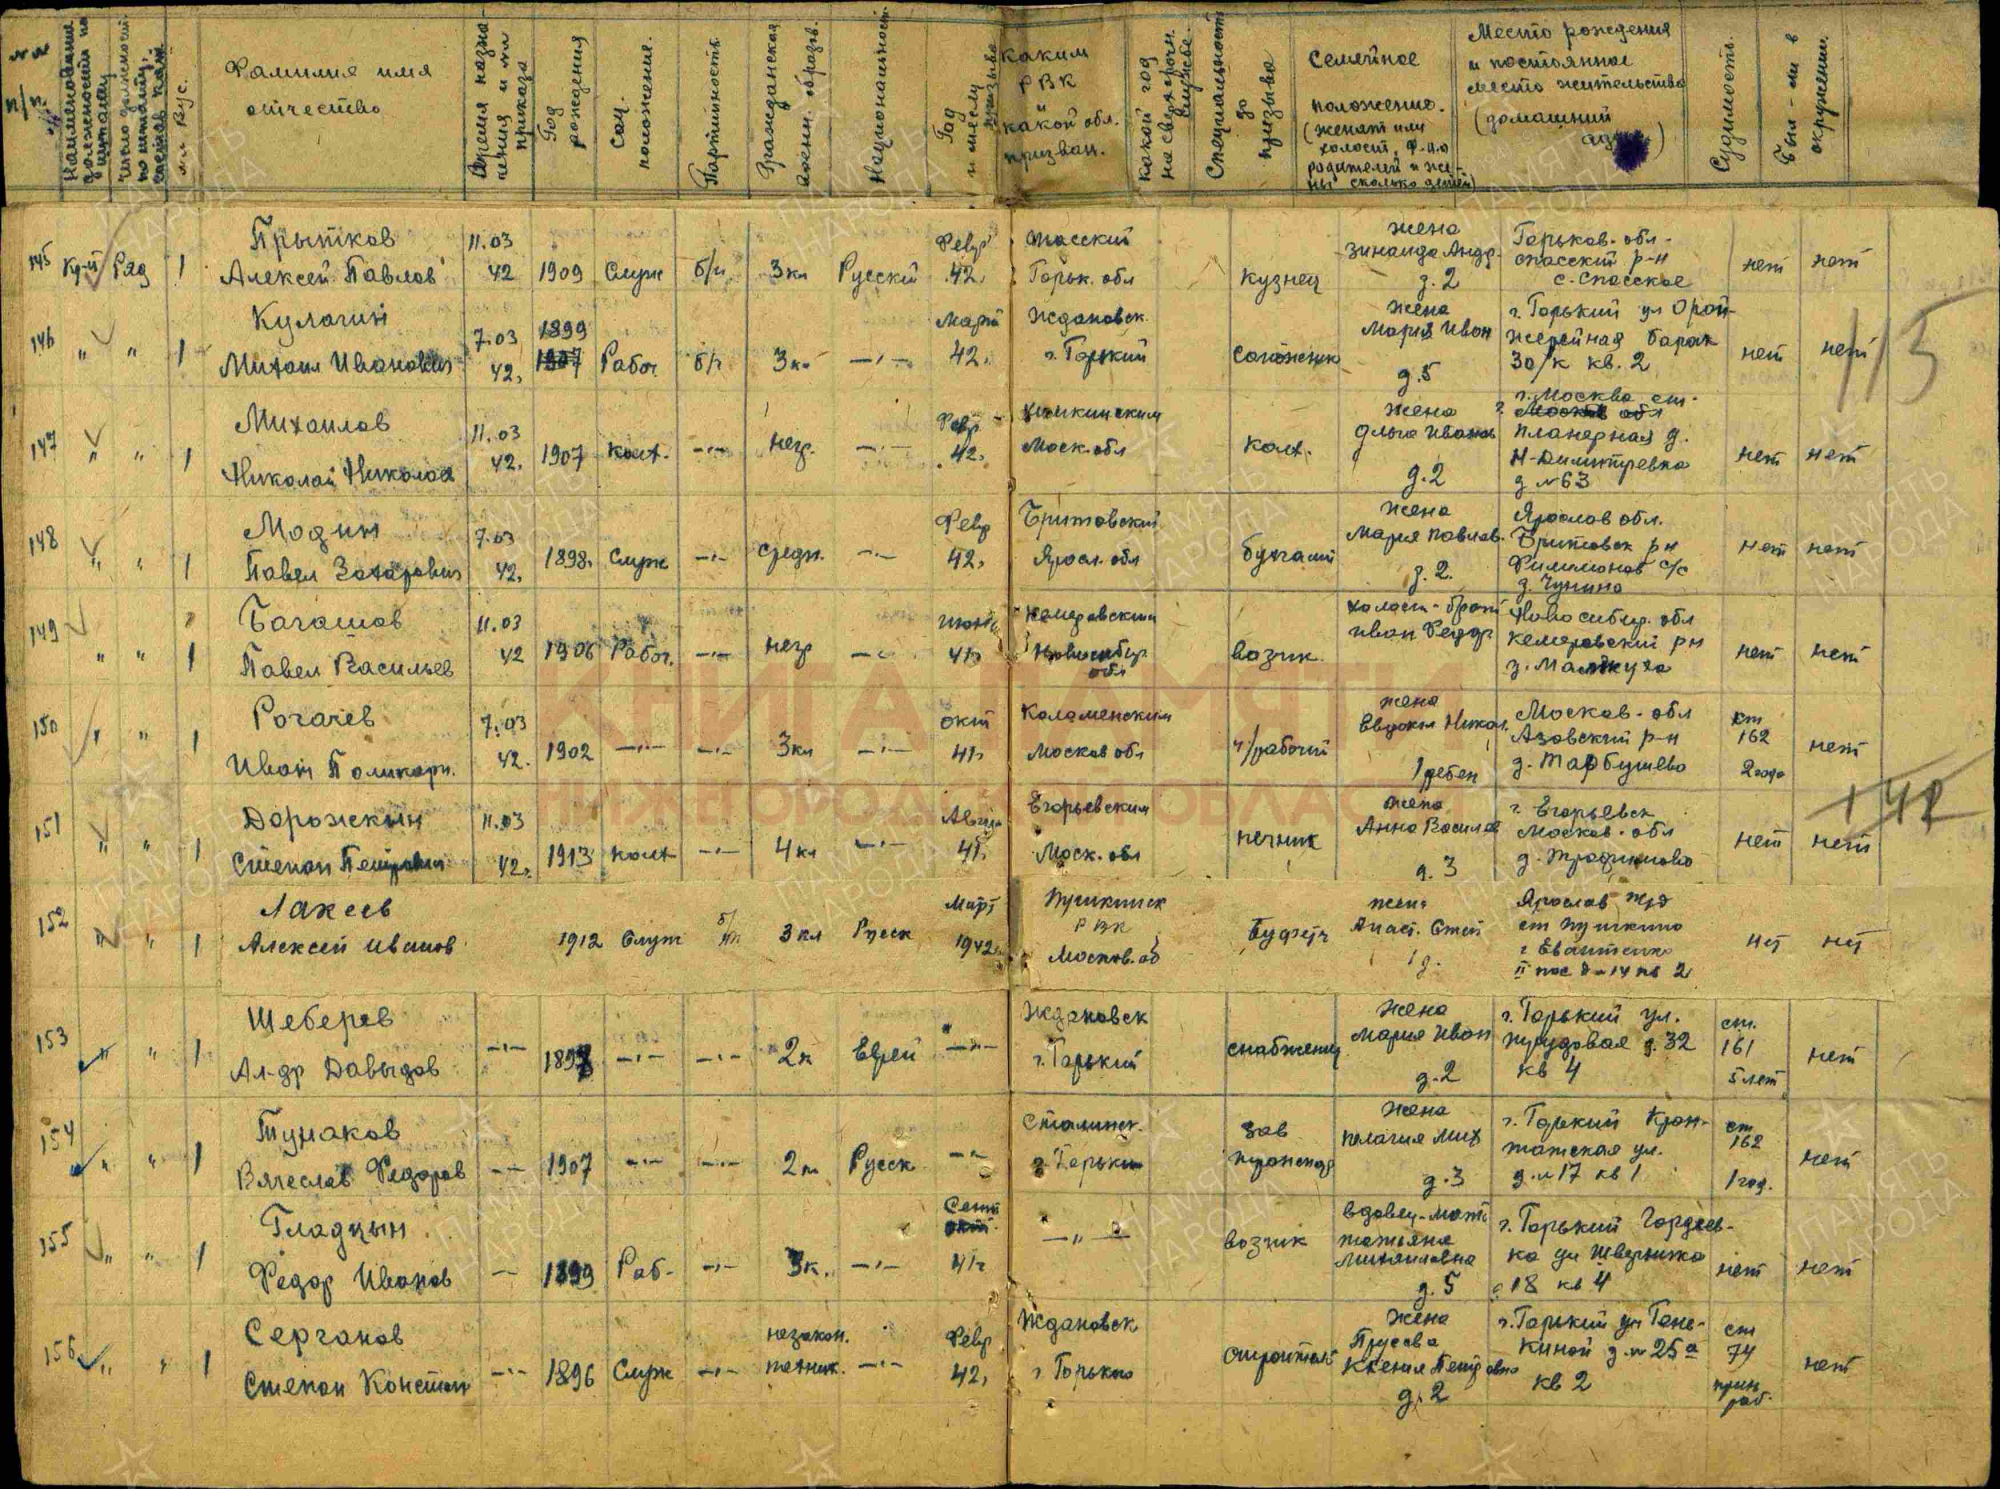 №№ п/п.
Наименование должности по штату
Число должностей по штату,
№№ ВУС.
Фамилия имя отчество
Время назначения и №№ приказа
Год рождения
Соц. положение.
Партийность
Гражданское воен. образ.
Национальность
Год и месяц призыва
Каким РВК и какой обл. призван.
какой год на сверхсрочн. службе.
Специальность до призыва
Семейное положение. (женат или холост, ф.и.о родителей и жены сколько детей)
Место рождения и постоянное место жительства (домашний адр )
Судимость.
Был-ли в окружении.
145 Ряд 1 Прытков Алексей Павлов 11.03 42 1909 Служ б/п. 3 кл Русский Февр 42г Горьк. обл кузнец жена Зинаида Андр. д.2 Горьков. обл. Спасский р-н с. Спасское нет нет
146 " " 1 Кулагин Михаил Иванович 7.03 42г 1899 Рабоч б/п 3 кл —"— Март 42г Ждановск. г. Горький жена Мария Иван д.5 г. Горький ул Оранжерейная барак 30/к кв. 2 нет нет
115
147 " " 1 Михайлов Николай Николаев 11.03 42г 1907 колх. —"— негр. —"— Февр 42г Химкинским Моск. обл колх. жена Ольга Иванов д.2 г. Москва ст. Планерная д. Н-Дмитревка д №63 нет нет
148 " " 1 Модин Павел Захарович 7.03 42г 1898г Служ —"— средн. —"— Февр 42г Яросл. обл жена Мария Павлов. д.2. Яросл ов обл. р-н с/с д. Чупино нет нет
149 " " 1 Багашов Павел Васильев 11.03 42 1906 Рабоч. —"— негр —"— 41г Кемеровским Новосибир обл возчик холост-брат Иван Федор Новосибир. обл Кемеровский р-н нет нет
150 " " 1 Рогачев Иван Поликарп. 7.03 42. 1902 —"— —"— 3 кл —"— окт 41г Коломенским Москов обл ч/рабочий жена Евдокия Никол. 1 ребен Москов. обл р-н д. Тарбушево ст 162 2 года нет
151 " " 1 Дорожкин Степан Петрович 11.03 42г 1913 колх —"— 4 кл —"— Август 41г Егорьевским Моск. обл печник жена Анна Василев д. 3 г. Егорьевск Москов. обл нет нет
142
152 " " 1 Лакеев Алексей Иванов 1912 Служ б/п 3 кл Русск Март 1942г Пушкинск РВК Москов. об жена Анаст. Степ 1 д. Ярослав жд ст Пушкино нет нет
153 " " 1 Шеберев Ал-др Давыдов —"— —"— —"— 2 к Еврей —"— Ждановск г. Горький снабженец жена Мария Иван д.2 г. Горький ул. Трудовая д. 32 кв 4 ст. 161 5 лет нет
154 " " 1 Тумаков Вячеслав Федоров —"— 1907 —"— —"— 2 к. Русск —"— Сталинск. г. Горький Зав жена Пелагия Мих д.3 г. Горький Кронштатская ул. д. №17 кв 1 ст 162 1 год. нет
155 " " 1 Гладцын Федор Иванов —"— 1899 Раб. —"— 3 к. —"— Сент 41г —"— возчик вдовец-мать Татьяна Михайловна д. 5 г. Горький Гордеевка ул д 18 кв 4 нет нет
156 " " 1 Серганов Степан Констан —"— 1896 Служ —"— незакон. техник. —"— Февр 42г Ждановск г Горький строитель жена Ксения Петровна д. 2 г. Горький ул Генкиной д. № 25а кв 2 ст 74 прин. раб. нет
КНИГА ПАМЯТИ
НИЖЕГОРОДСКОЙ ОБЛАСТИ
ПАМЯТЬ НАРОДА